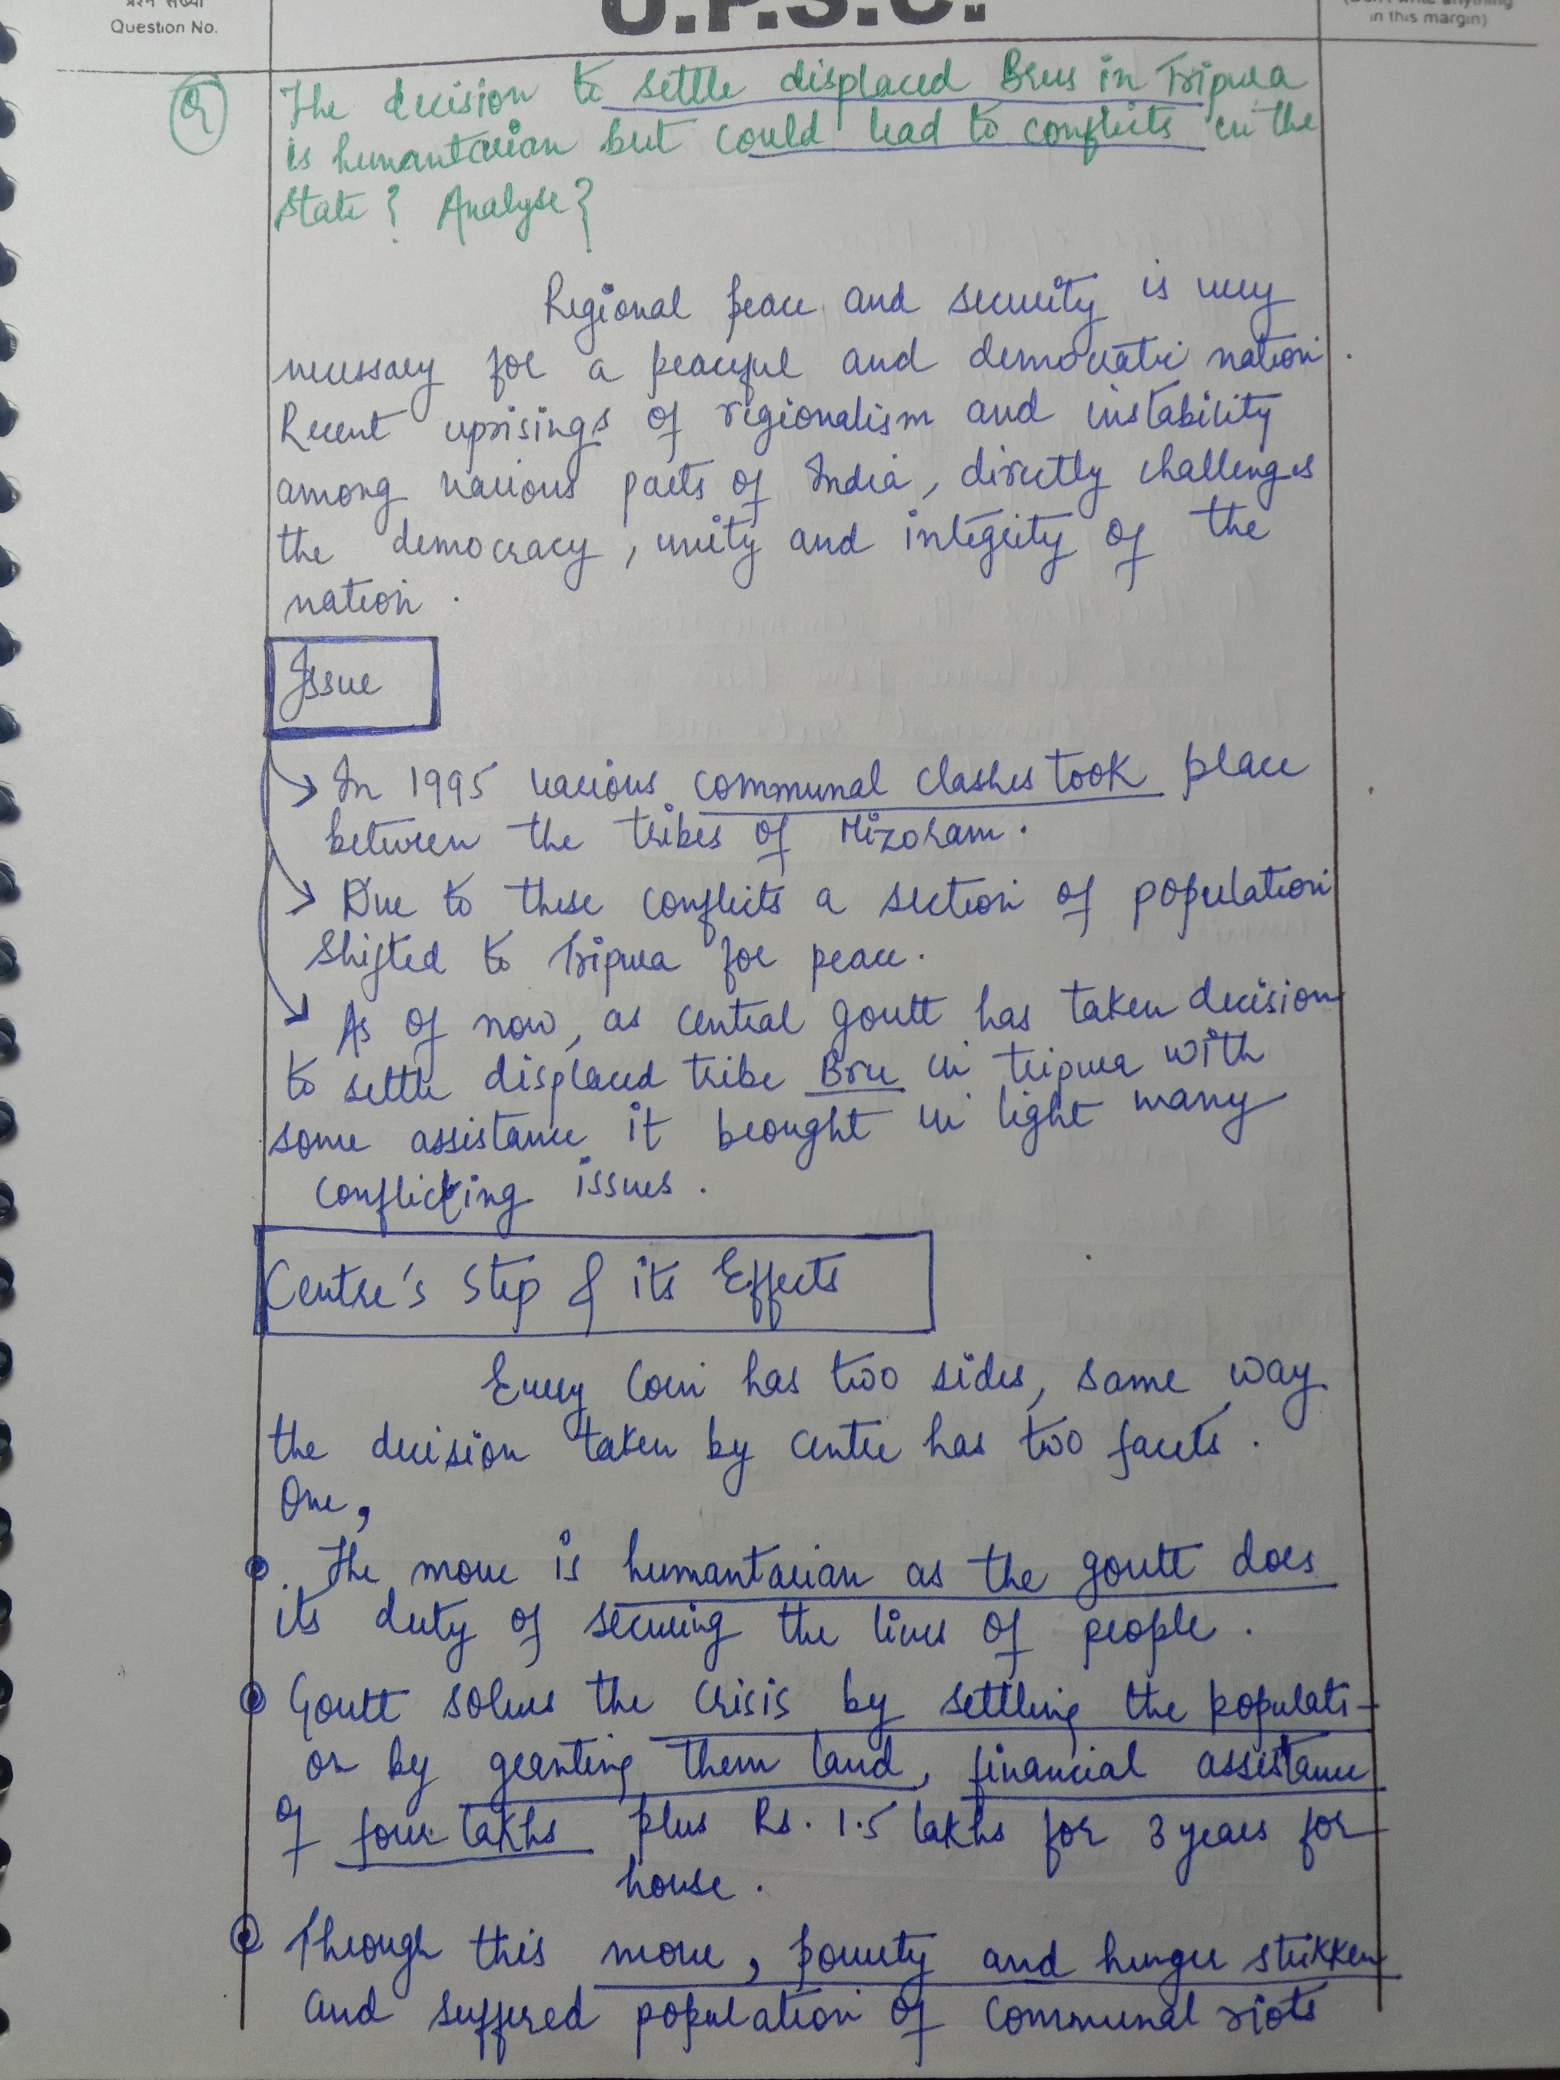 प्रश्न संख्या
Question No.
U.P.S.C.
(Don't write anything
in this margin)
Q The decision to settle displaced Brus in Tripura
is humantarian but could lead to conflicts in the
state? Analyse?
Regional peace and security is very
necessary for a peaceful and democratic nation.
Recent uprisings of regionalism and instability
among various parts of India, directly challenges
the democracy, unity and integrity of the
nation.
Issue
→ In 1995 various communal clashes took place
between the tribes of Mizoram.
→ Due to these conflicts a section of population
shifted to Tripura for peace.
→ As of now, as central goutt has taken decision
to settle displaced tribe Bru in tripura with
some assistance it brought in light many
conflicting issues.
Centre's Step & its Effects
Every Coin has two sides, same way
the decision taken by centre has two facets.
One,
• The move is humantarian as the goutt does
its duty of securing the lives of people.
• Goutt solves the crisis by settling the populati-
on by granting them land, financial assistance
of four lakhs plus Rs. 1.5 lakhs for 3 years for
house.
• Through this move, poverty and hunger strikken
and suffered population of communal riots